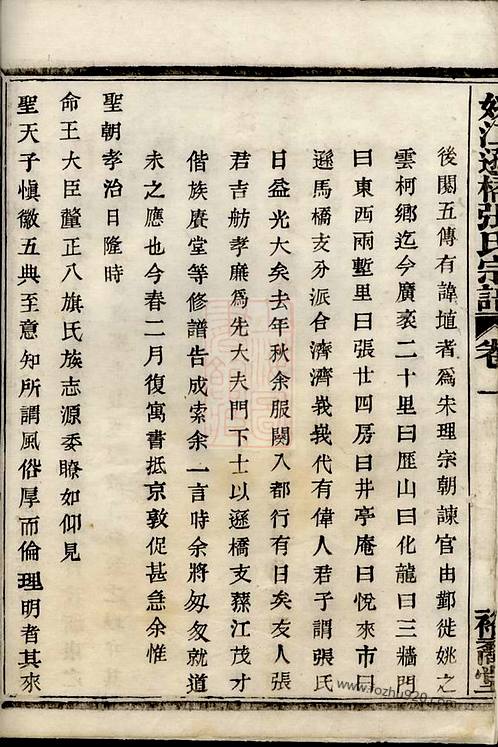 姚江遜橋張氏宗譜 卷一
後閱五傳有諱埴者爲宋理宗朝諫官由鄞徙姚之
雲柯鄉迄今廣袤二十里曰歷山曰化龍曰三牆門
曰東西兩塹里曰張廿四房曰井亭庵曰悅來市曰
遜馬橋支分派合濟濟峩峩代有偉人君子謂張氏
日益光大矣去年秋余服闋入都行有日矣友人張
君吉舫孝廉爲先大夫門下士以遜橋支蓀江茂才
偕族賡堂等修譜告成索余一言時余將匆匆就道
未之應也今春二月復寓書抵京敦促甚急余惟
聖朝孝治日隆時
命王大臣釐正八旗氏族志源委瞭如仰見
聖天子愼徽五典至意知所謂風俗厚而倫理明者其來
www.fozhu920.com